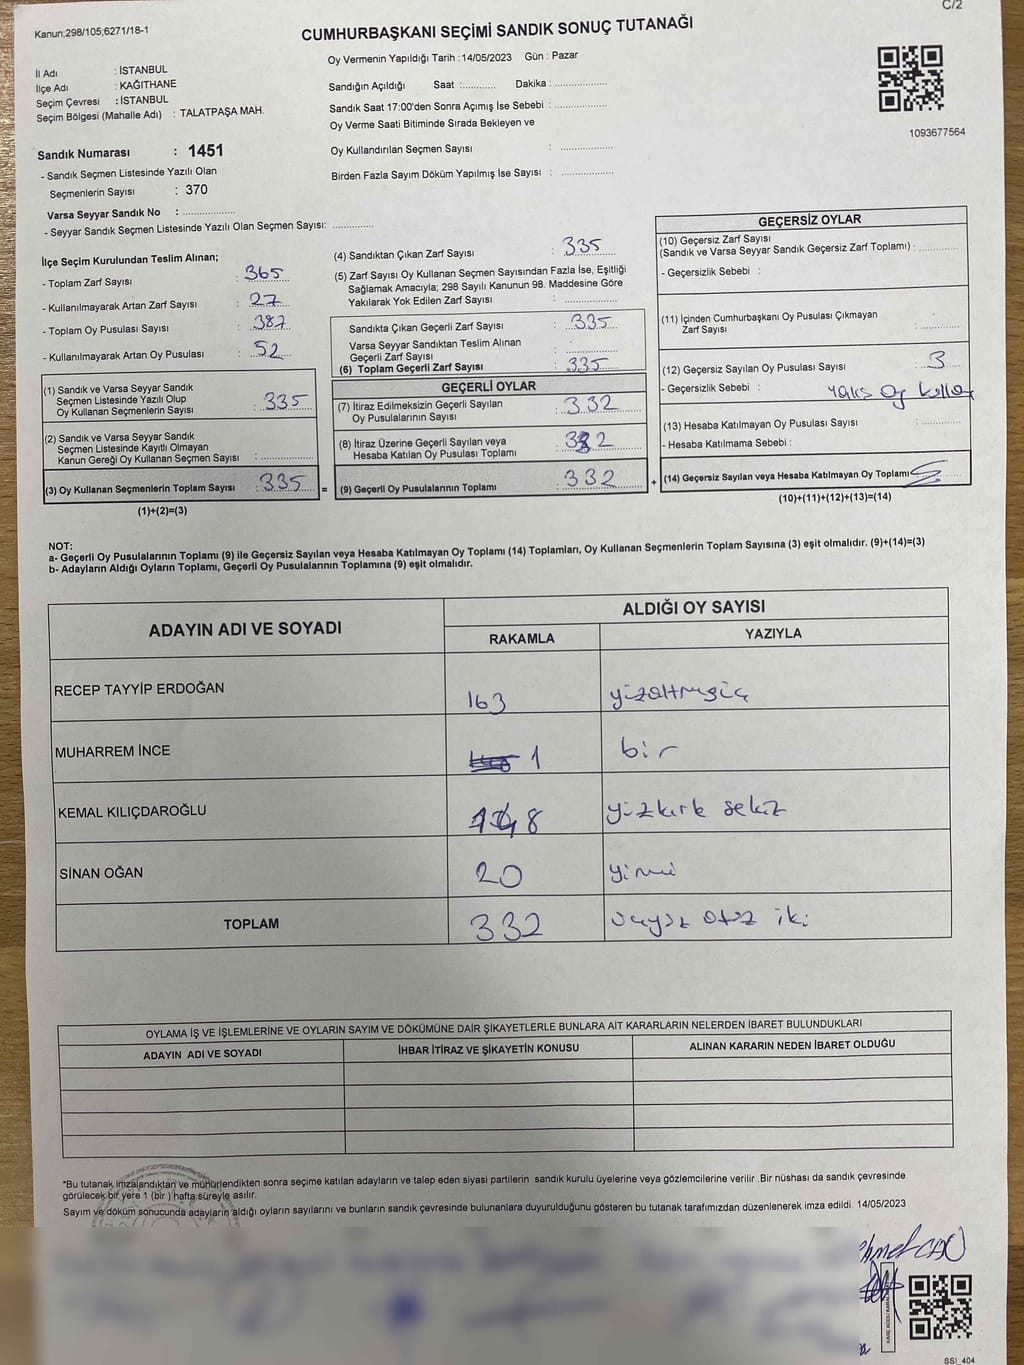 C/2
Kanun;298/105;6271/18-1
CUMHURBAŞKANI SEÇİMİ SANDIK SONUÇ TUTANAĞI
Oy Vermenin Yapıldığı Tarih :14/05/2023 Gün : Pazar
İl Adı : İSTANBUL
İlçe Adı : KAĞITHANE
Seçim Çevresi : İSTANBUL
Seçim Bölgesi (Mahalle Adı) : TALATPAŞA MAH.
Sandığın Açıldığı Saat :........... Dakika :................
Sandık Saat 17:00'den Sonra Açımış İse Sebebi :................
Oy Verme Saati Bitiminde Sırada Bekleyen ve
Oy Kullandırılan Seçmen Sayısı :................
Birden Fazla Sayım Döküm Yapılmış İse Sayısı :................
1093677564
Sandık Numarası : 1451
- Sandık Seçmen Listesinde Yazılı Olan
Seçmenlerin Sayısı : 370
Varsa Seyyar Sandık No : ................
- Seyyar Sandık Seçmen Listesinde Yazılı Olan Seçmen Sayısı: .............
İlçe Seçim Kurulundan Teslim Alınan;
- Toplam Zarf Sayısı : 365
- Kullanılmayarak Artan Zarf Sayısı : 27
- Toplam Oy Pusulası Sayısı : 387
- Kullanılmayarak Artan Oy Pusulası : 52
(1) Sandık ve Varsa Seyyar Sandık
Seçmen Listesinde Yazılı Olup
Oy Kullanan Seçmenlerin Sayısı : 335
(2) Sandık ve Varsa Seyyar Sandık
Seçmen Listesinde Kayıtlı Olmayan
Kanun Gereği Oy Kullanan Seçmen Sayısı :................
(3) Oy Kullanan Seçmenlerin Toplam Sayısı : 335 =
(1)+(2)=(3)
(4) Sandıktan Çıkan Zarf Sayısı : 335
(5) Zarf Sayısı Oy Kullanan Seçmen Sayısından Fazla İse, Eşitliği
Sağlamak Amacıyla; 298 Sayılı Kanunun 98. Maddesine Göre
Yakılarak Yok Edilen Zarf Sayısı :................
Sandıkta Çıkan Geçerli Zarf Sayısı : 335
Varsa Seyyar Sandıktan Teslim Alınan
Geçerli Zarf Sayısı :................
(6) Toplam Geçerli Zarf Sayısı : 335
GEÇERLİ OYLAR
(7) İtiraz Edilmeksizin Geçerli Sayılan
Oy Pusulalarının Sayısı : 332
(8) İtiraz Üzerine Geçerli Sayılan veya
Hesaba Katılan Oy Pusulası Toplamı : 332
(9) Geçerli Oy Pusulalarının Toplamı : 332 +
GEÇERSİZ OYLAR
(10) Geçersiz Zarf Sayısı
(Sandık ve Varsa Seyyar Sandık Geçersiz Zarf Toplamı) :............
- Geçersizlik Sebebi :
(11) İçinden Cumhurbaşkanı Oy Pusulası Çıkmayan
Zarf Sayısı :............
(12) Geçersiz Sayılan Oy Pusulası Sayısı : 3
- Geçersizlik Sebebi :
(13) Hesaba Katılmayan Oy Pusulası Sayısı :............
- Hesaba Katılmama Sebebi :
(14) Geçersiz Sayılan veya Hesaba Katılmayan Oy Toplamı
(10)+(11)+(12)+(13)=(14)
NOT:
a- Geçerli Oy Pusulalarının Toplamı (9) ile Geçersiz Sayılan veya Hesaba Katılmayan Oy Toplamı (14) Toplamları, Oy Kullanan Seçmenlerin Toplam Sayısına (3) eşit olmalıdır. (9)+(14)=(3)
b- Adayların Aldığı Oyların Toplamı, Geçerli Oy Pusulalarının Toplamına (9) eşit olmalıdır.
ADAYIN ADI VE SOYADI
ALDIĞI OY SAYISI
RAKAMLA YAZIYLA
RECEP TAYYİP ERDOĞAN 163 yüzaltmışüç
MUHARREM İNCE 1 bir
KEMAL KILIÇDAROĞLU 148 yüzkırk sekiz
SİNAN OĞAN 20 yirmi
TOPLAM 332 üçyüz otuz iki
OYLAMA İŞ VE İŞLEMLERİNE VE OYLARIN SAYIM VE DÖKÜMÜNE DAİR ŞİKAYETLERLE BUNLARA AİT KARARLARIN NELERDEN İBARET BULUNDUKLARI
ADAYIN ADI VE SOYADI İHBAR İTİRAZ VE ŞİKAYETİN KONUSU ALINAN KARARIN NEDEN İBARET OLDUĞU
*Bu tutanak imzalandıktan ve mühürlendikten sonra seçime katılan adayların ve talep eden siyasi partilerin sandık kurulu üyelerine veya gözlemcilerine verilir .Bir nüshası da sandık çevresinde
görülecek bir yere 1 (bir ) hafta süreyle asılır.
Sayım ve döküm sonucunda adayların aldığı oyların sayılarını ve bunların sandık çevresinde bulunanlara duyurulduğunu gösteren bu tutanak tarafımızdan düzenlenerek imza edildi. 14/05/2023
SSI_404